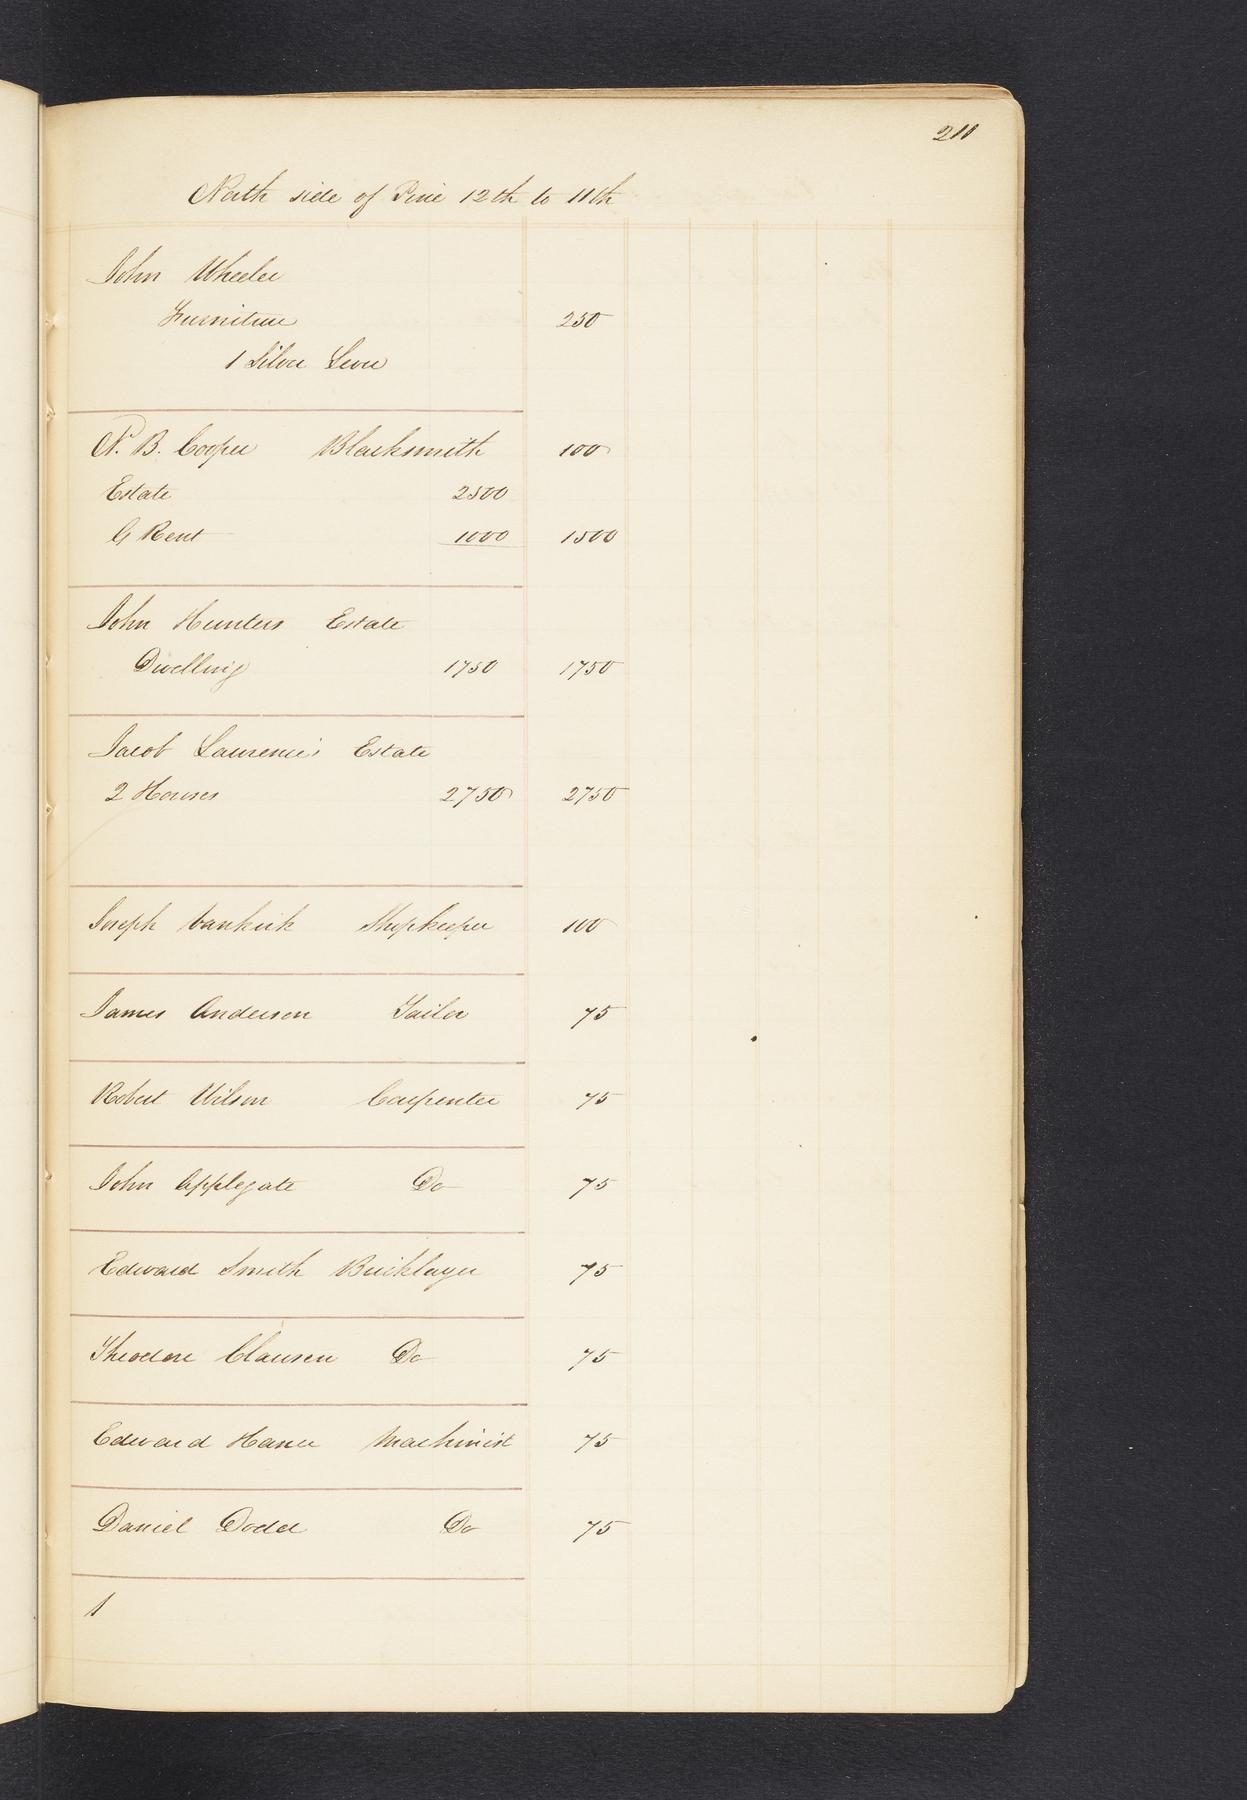 211
North side of Pine 12th to 11th
John Wheeler
Furniture 250
1 Silver Lever
N. B. Cooper Blacksmith 100
Estate 2500
G Rent 1000 1500
John Hunters Estate
Dwelling 1750 1750
Jacob Laurence's Estate
2 Houses 2750 2750
Joseph Vankirk Shopkeeper 100
James Anderson Tailor 75
Robert Wilson Carpenter 75
John Applegate Do 75
Edward Smith Bricklayer 75
Theodore Clausen Do 75
Edward Haner Machinist 75
Daniel Dodd Do 75
1